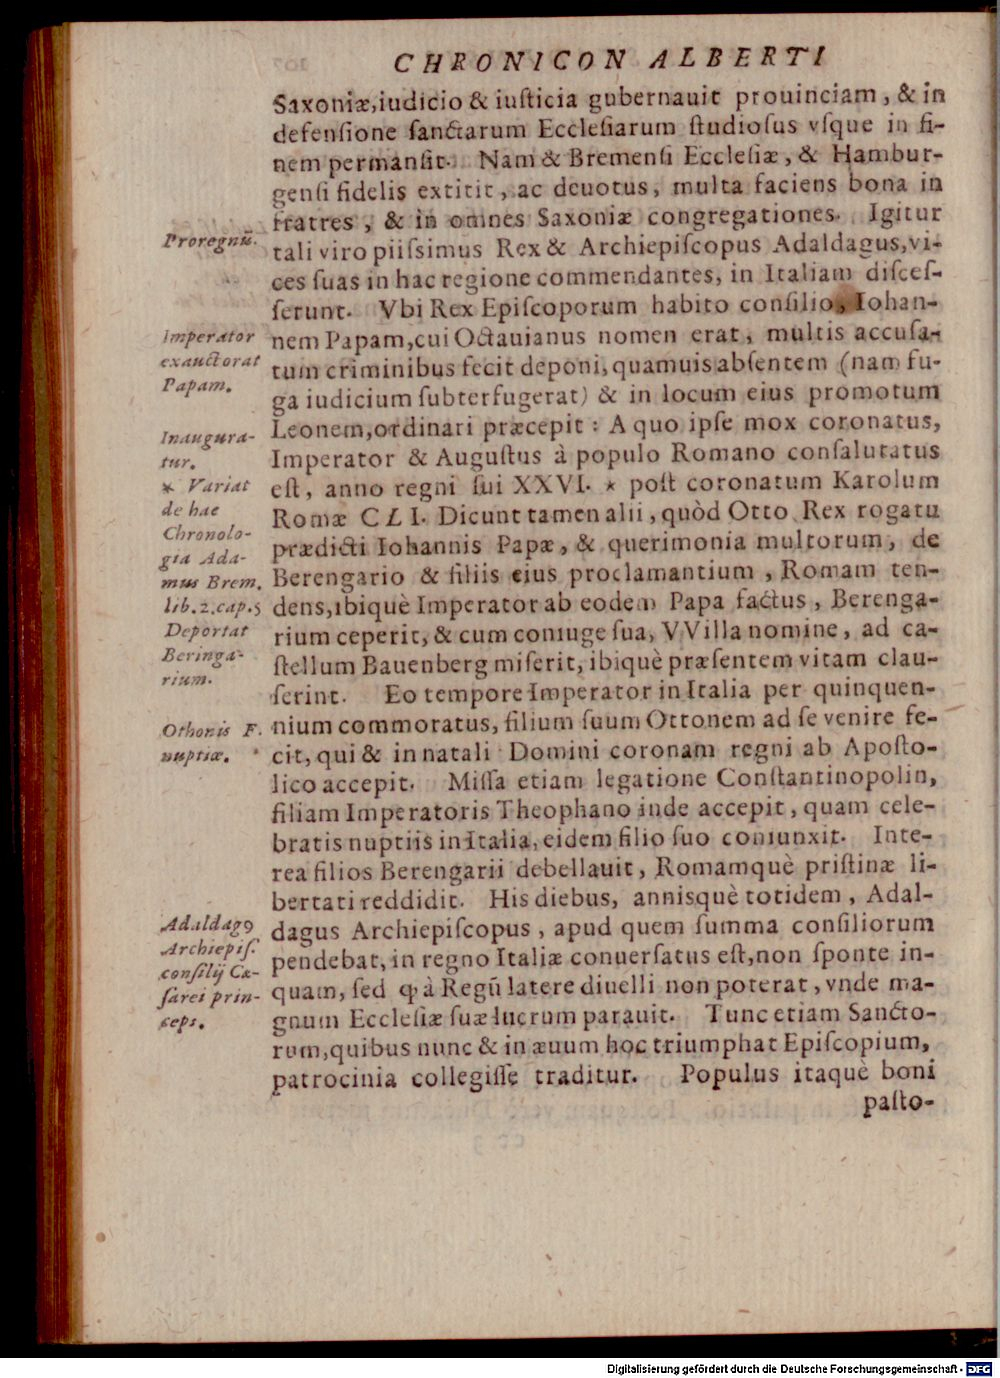 CHRONICON ALBERTI
Saxoniæ,iudicio & iuſticia gubernauit prouinciam, & in
defenſione ſanctarum Eccleſiarum ſtudioſus vſque in fi-
nem permanſit. Nam & Bremenſi Eccleſiæ, & Hambur-
genſi fidelis extitit, ac deuotus, multa faciens bona in
fratres, & in omnes Saxoniæ congregationes. Igitur
tali viro piiſsimus Rex & Archiepiſcopus Adaldagus,vi-
ces ſuas in hac regione commendantes, in Italiam diſceſ-
ſerunt. Vbi Rex Epiſcoporum habito conſilio, Iohan-
nem Papam,cui Octauianus nomen erat, multis accuſa-
tum criminibus fecit deponi, quamuis abſentem (nam fu-
ga iudicium ſubterfugerat) & in locum eius promotum
Leonem,ordinari præcepit: A quo ipſe mox coronatus,
Imperator & Auguſtus à populo Romano conſalutatus
eſt, anno regni ſui XXVI. * poſt coronatum Karolum
Romæ CLI. Dicunt tamen alii, quòd Otto Rex rogatu
prædicti Iohannis Papæ, & querimonia multorum, de
Berengario & filiis eius proclamantium, Romam ten-
dens,ibiquè Imperator ab eodem Papa factus, Berenga-
rium ceperit, & cum coniuge ſua, VVilla nomine, ad ca-
ſtellum Bauenberg miſerit, ibiquè præſentem vitam clau-
ſerint. Eo tempore Imperator in Italia per quinquen-
nium commoratus, filium ſuum Ottonem ad ſe venire fe-
cit, qui & in natali Domini coronam regni ab Apoſto-
lico accepit. Miſſa etiam legatione Conſtantinopolin,
filiam Imperatoris Theophano inde accepit, quam cele-
bratis nuptiis in Italia, eidem filio ſuo coniunxit. Inte-
rea filios Berengarii debellauit, Romamquè priſtinæ li-
bertati reddidit. His diebus, annisquè totidem, Adal-
dagus Archiepiſcopus, apud quem ſumma conſiliorum
pendebat, in regno Italiæ conuerſatus eſt,non ſponte in-
quam, ſed ꝙ à Regũ latere diuelli non poterat, vnde ma-
gnum Eccleſiæ ſuæ lucrum parauit. Tunc etiam Sancto-
rum,quibus nunc & in æuum hoc triumphat Epiſcopium,
patrocinia collegiſſe traditur. Populus itaquè boni
paſto-
Proregnũ.
Imperator
exauctorat
Papam.
Inaugura-
tur.
* Variat
de hac
Chronolo-
gia Ada-
mus Brem.
lib.2.cap.5
Deportat
Beringa-
rium.
Othonis F.
nuptiæ.
Adaldagꝰ
Archiepiſ.
conſilij Cæ-
ſarei prin-
ceps.
Digitalisierung gefördert durch die Deutsche Forschungsgemeinschaft - DFG